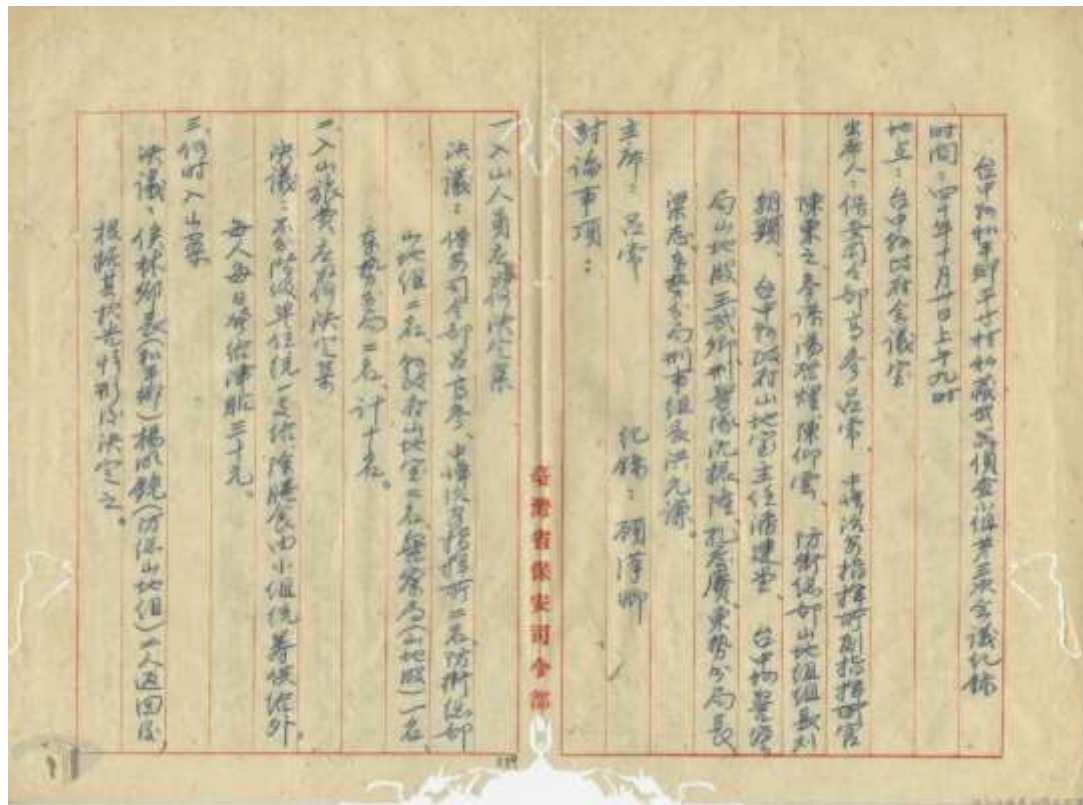 台中縣和平鄉平等村秘藏武器偵查小組第三次會議紀錄
時間：四十年十月廿日上午九時
地點：台中縣政府會議室
出席人：保安司令部高參呂常、中情治安指揮所副指揮官
陳東之、參謀湯 陳仰雲、防衛總部山地組組長刘
、台中縣政府山地室主任潘建堂、台中縣警察
局山地股王武卿刑警隊沈振陸、孔 廣、東勢分局長
梁志 東勢分局刑事組長洪元源。
主席：呂常　　紀錄：顧澤卿
討論事項：
一、入山人員應如何決定案
決議：保安司令部呂高參、中情治安指揮所二名、防衛總部
山地組二名、縣政府山地室二名、警察局（山地股）一名
東勢分局二名、計十名。
二、入山旅費應如何決定案
決議：不分階級單位統一支給除膳食由小組統籌供給外
每人每日發給津貼三十元。
三、何時入山案
決議：俟林鄉長（和平鄉）楊 鏡（防總山地組）二人返回後
根據其報告情形後決定之。
臺灣省保安司令部